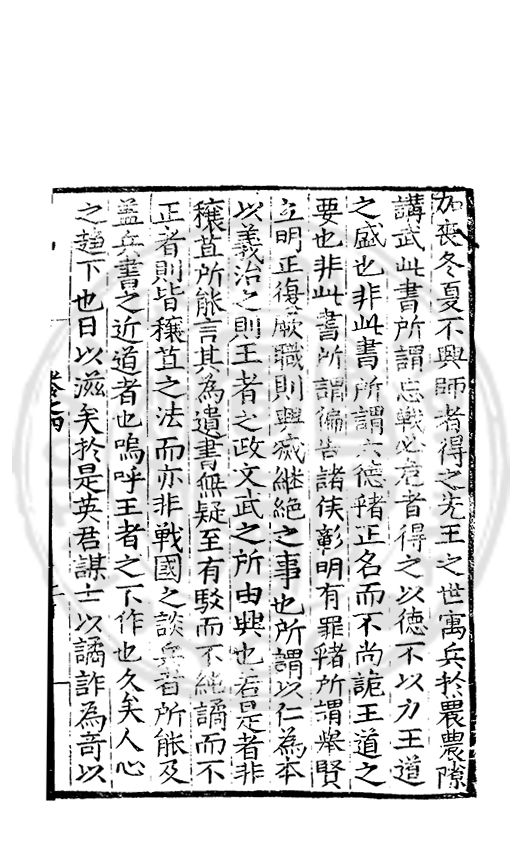 加喪冬夏不興師者得之先王之世寓兵於農農隙
講武此書所謂忘戰必危者得之以德不以力王道
之盛也非此書所謂六德豬正名而不尚詭王道之
要也非此書所謂徧告諸侯彰明有罪豬所謂舉賢
立明正復厥職則興滅継絶之事也所謂以仁為本
以義治之則王者之政文武之所由興也若是者非
穰苴所能言其為遺書無疑至有駁而不純譎而不
正者則皆穰苴之法而亦非戰國之談兵者所能及
盖兵書之近道者也嗚呼王者之不作也久矣人心
之趋下也日以滋矣於是英君謀士以譎詐為奇以
卷之四